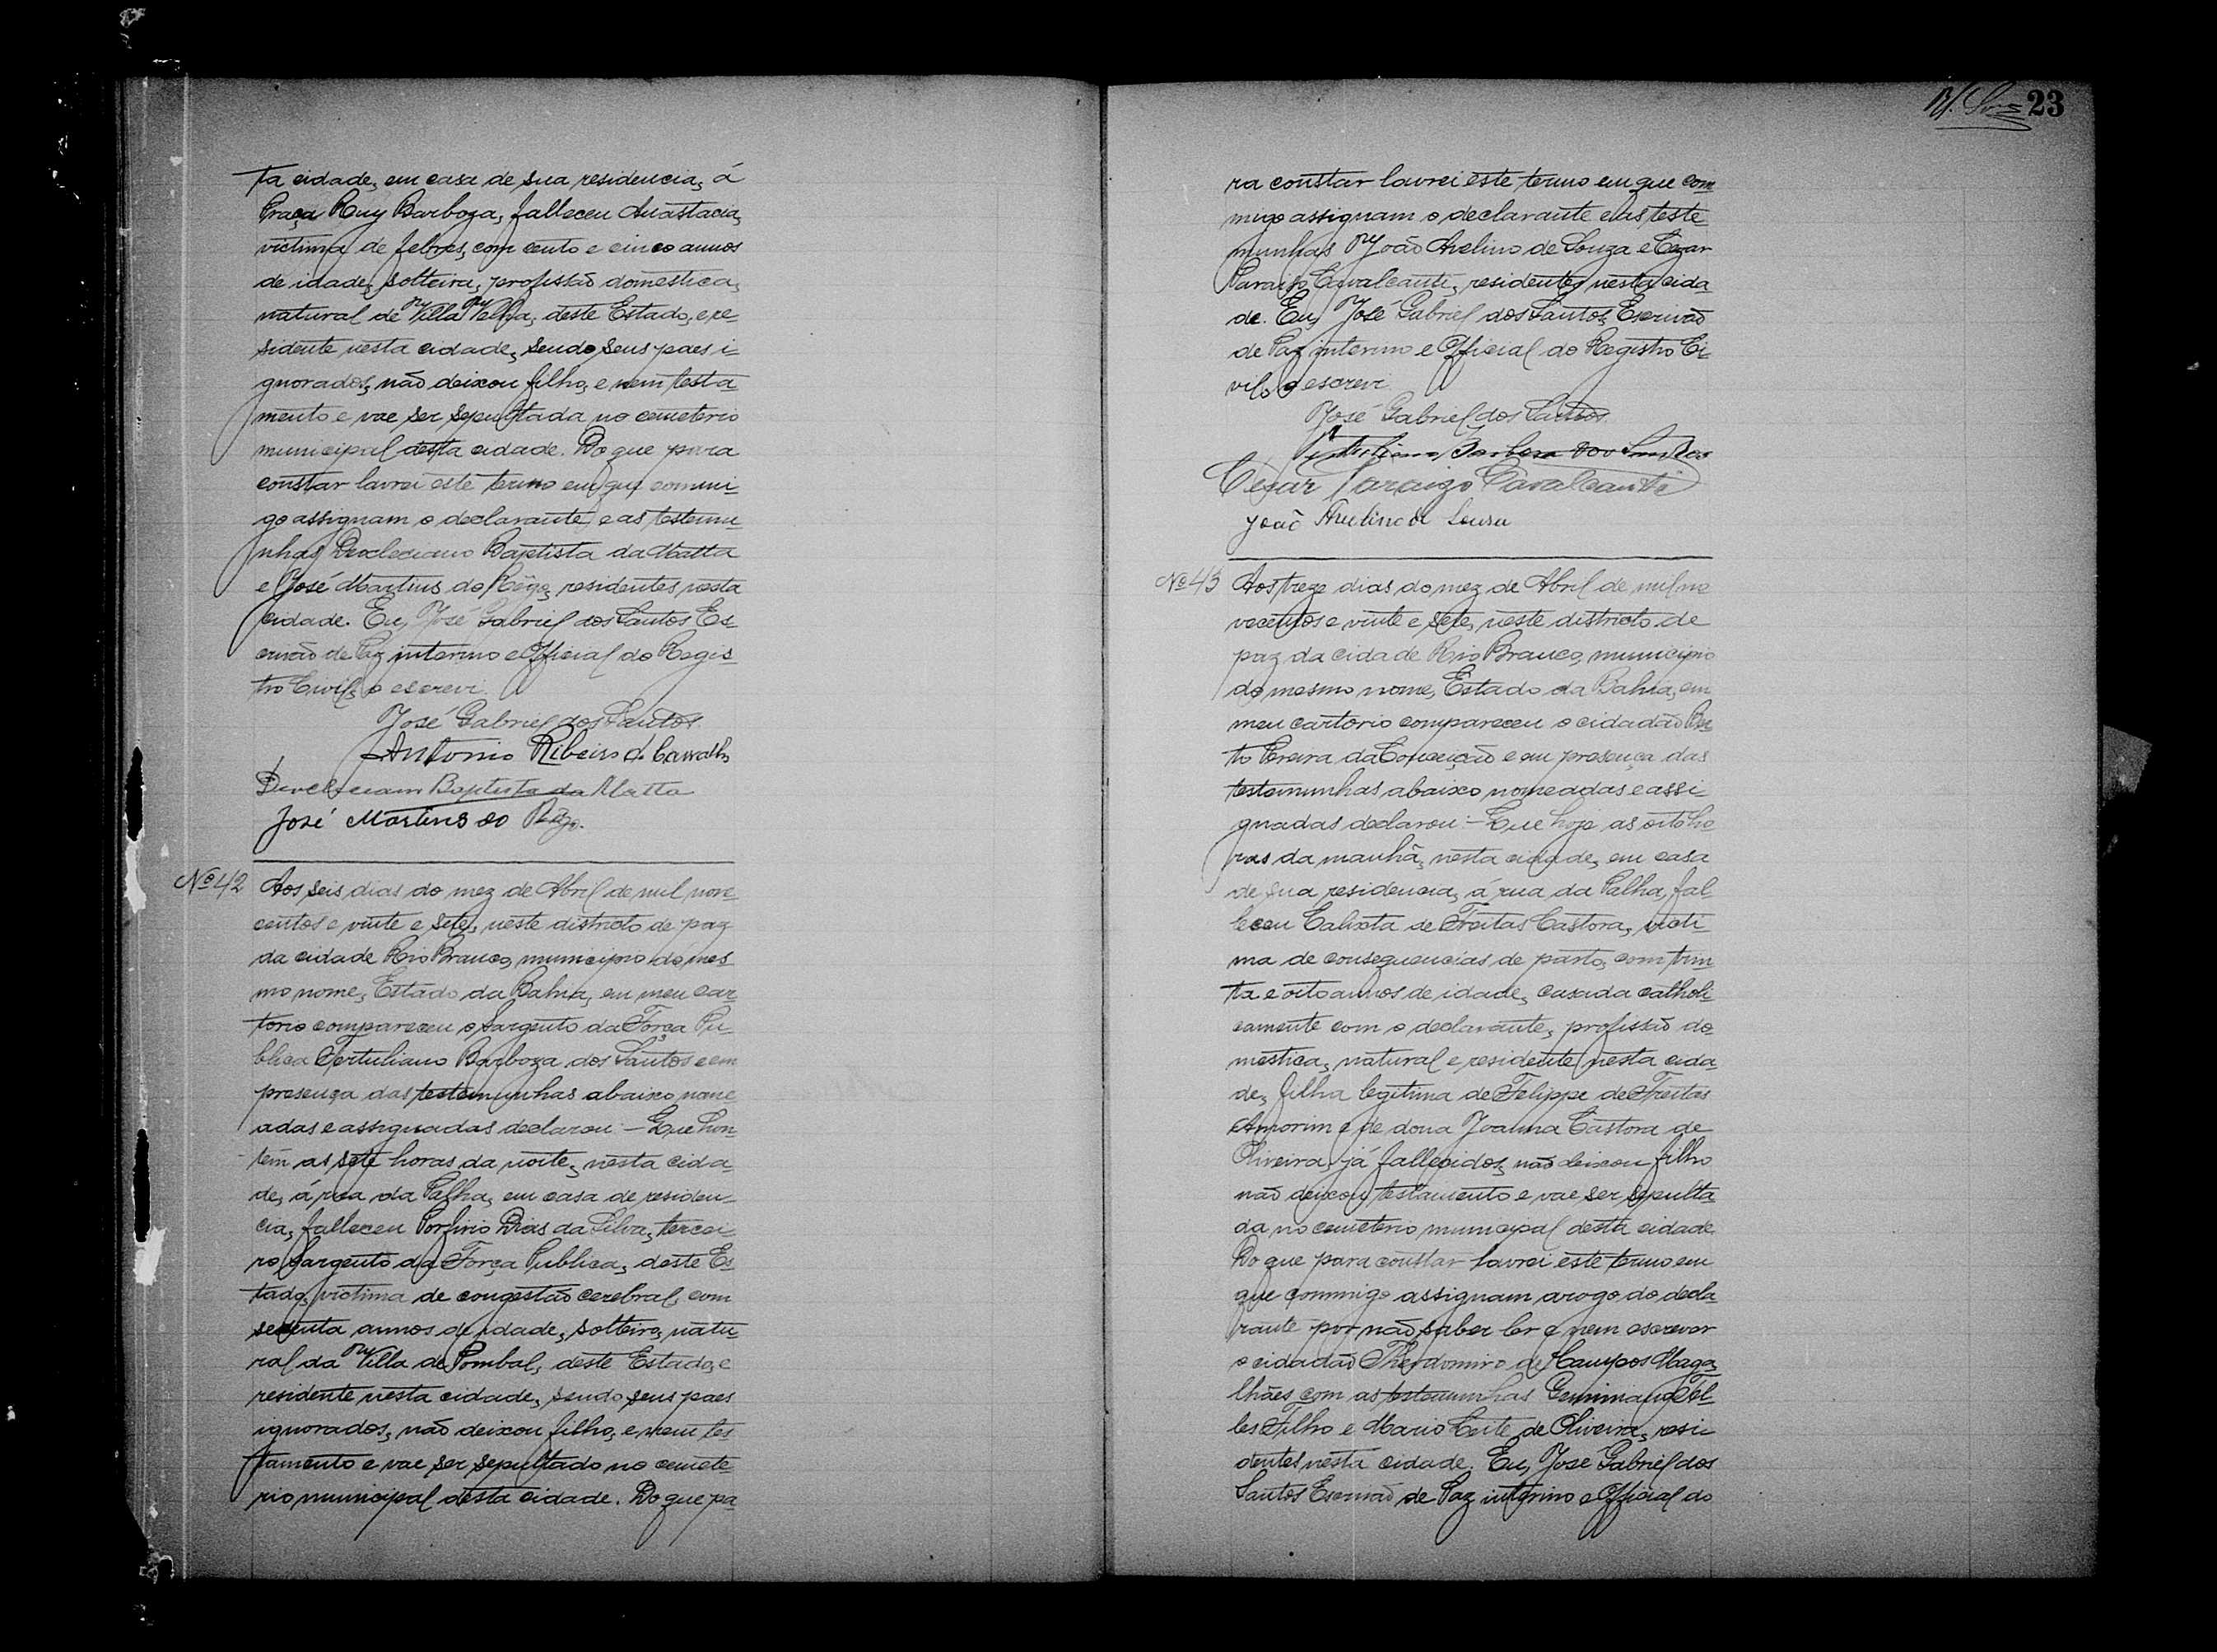 ta cidade, em casa de sua residencia, á
Praça Ruy Barboza, falleceu Anastacia,
victima de febres, com cento e cinco annos
de idade, solteira, profissão domestica,
natural de Villa Velha, deste Estado, e re-
sidente nesta cidade, sendo seus paes i-
gnorados, não deixou filho, e nem testa-
mento e vae ser sepultada no cemeterio
municipal desta cidade. Do que para
constar lavrei este termo em que commi-
go assignam o declarante e as testemu-
nhas Deocleciano Baptista da Matta
e José Martins do Rêgo, residentes nesta
cidade. Eu, José Gabriel dos Santos Es-
crivão de Paz interino e Official do Regis-
tro Civil, o escrevi.
José Gabriel dos Santos
Antonio Ribeiro de Carvalho
Deocleciano Baptista da Matta
José Martins do Rêgo.
Nº 42 Aos seis dias do mez de Abril de mil nove-
centos e vinte e sete, neste districto de paz
da cidade Rio Branco, municipio do mes-
mo nome, Estado da Bahia, em meu car-
torio compareceu o Sargento da Força Pu-
blica Tertuliano Barboza dos Santos e em
presença das testemunhas abaixo nome
adas e assignadas declarou: - Que hon-
tem as sete horas da noite, nesta cida-
de, á rua da Palha, em casa de residen-
cia, falleceu Porfirio Dias da Silva, tercei-
ro Sargento da Força Publica, deste Es-
tado, victima de congestão cerebral, com
annos de idade, solteiro, natu-
ral da Villa de Pombal, deste Estado, e
residente nesta cidade, sendo seus paes
ignorados, não deixou filho, e nem tes-
tamento e vae ser sepultado no cemete-
rio municipal desta cidade. Do que pa-
23
ra constar lavrei este termo em que com
migo assignam o declarante e as teste-
munhas João Avelino de Souza e Cezar
Paraizo Cavalcanti, residentes nesta cida-
de. Eu, José Gabriel dos Santos, Escrivão
de Paz interino e Official do Registro Ci-
vil, o escrevi
José Gabriel dos Santos
Tertuliano Barboza dos Santos
Cezar Paraizo Cavalcanti
João Avelino de Souza
Nº 43 Aos treze dias do mez de Abril de mil no
vecentos e vinte e sete, neste districto de
paz da cidade Rio Branco, municipio
do mesmo nome, Estado da Bahia, em
meu cartorio compareceu o cidadão Ben-
to Pereira da Conceição e em presença das
testemunhas abaixo nomeadas e assi-
gnadas declarou: - Que hoje as oito ho
ras da manhã, nesta cidade, em casa
de sua residencia, á rua da Palha, fal-
leceu Calixta de Freitas Castora, victi-
ma de consequencias de parto, com trin-
ta e oito annos de idade, casada catholi-
camente com o declarante, profissão do-
mestica, natural e residente nesta cida-
de, filha legitima de Felippe de Freitas
Amorim e de dona Joanna Castora de
Oliveira, já fallecidos, não deixou filho
não deixou testamento e vae ser sepulta-
da no cemeterio municipal desta cidade.
Do que para constar lavrei este termo em
que commigo assignam arogo do decla-
rante por não saber ler e nem escrever
o cidadão Theodomiro de Campos Maga-
lhães com as testemunhas Geminiano Tel-
les Filho e Mario Leite de Oliveira, resi-
dentes nesta cidade. Eu, José Gabriel dos
Santos Escrivão de Paz interino e Official do